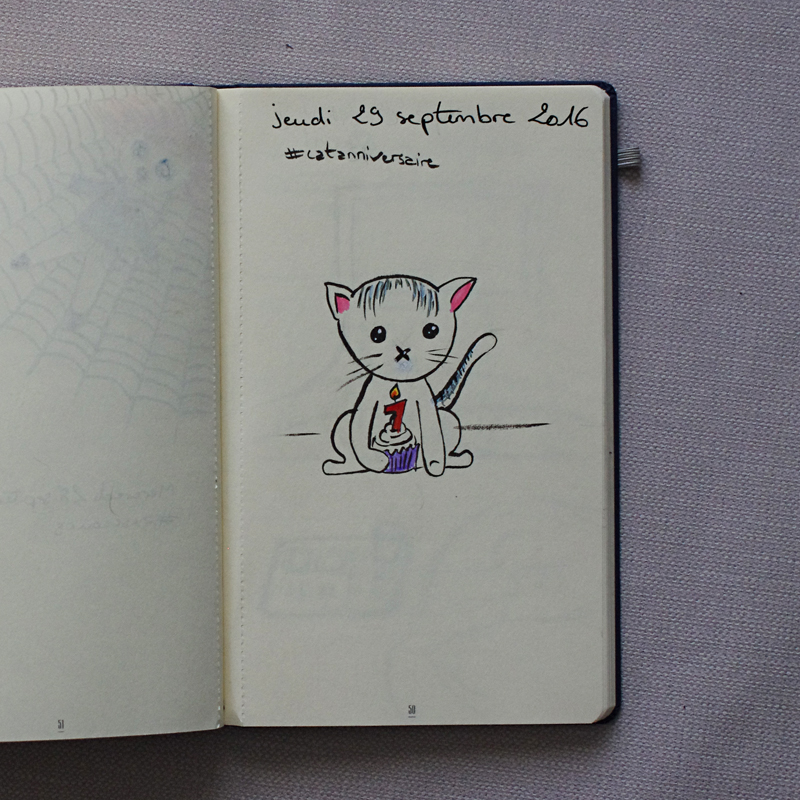 jeudi 29 septembre 2016
#catanniversaire
51
50